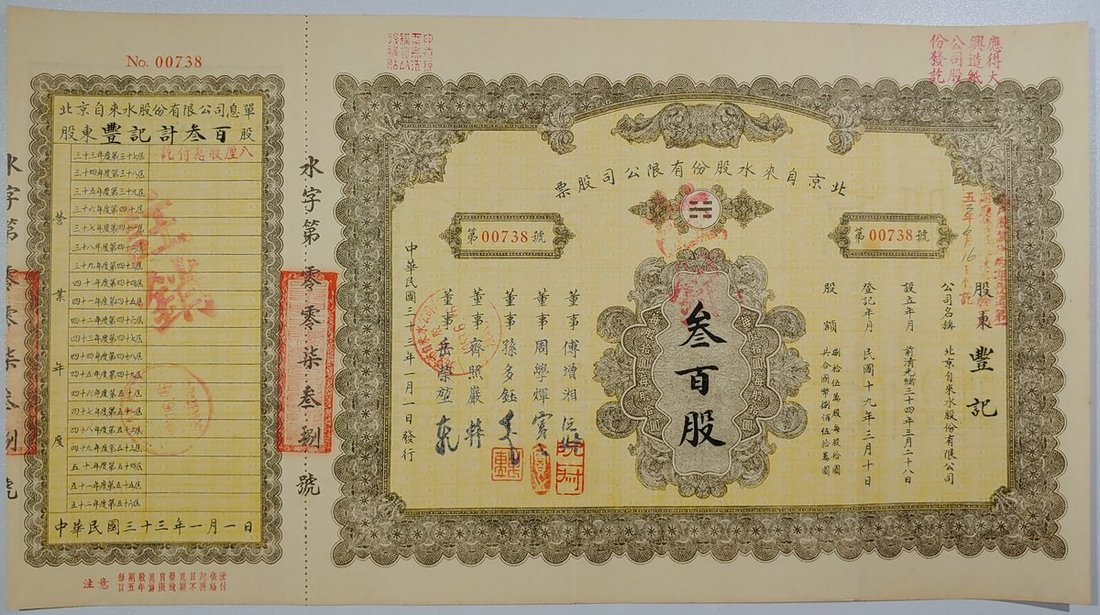 No. 00738
北京自來水股份有限公司息單
股東豐記計叁百股
八厘股息付訖
營業年度
三十三年度第三十七屆
三十四年度第三十八屆
三十五年度第三十九屆
三十六年度第四十屆
三十七年度第四十一屆
三十八年度第四十二屆
三十九年度第四十三屆
四十年度第四十四屆
四十一年度第四十五屆
四十二年度第四十六屆
四十三年度第四十七屆
四十四年度第四十八屆
四十五年度第四十九屆
四十六年度第五十屆
四十七年度第五十一屆
四十八年度第五十二屆
四十九年度第五十三屆
五十年度第五十四屆
五十一年度第五十五屆
五十二年度第五十六屆
中華民國三十三年一月一日
註銷
注意
水字第零零柒叁捌號
應得大
興造紙
公司股
份發訖
北京自來水股份有限公司股票
第00738號
第00738號
股東 豐記
公司名稱 北京自來水股份有限公司
設立年月 前清光緒三十四年三月二十八日
登記年月 民國十九年三月十日
股額 捌拾伍萬股每股拾圓
共合國幣捌佰伍拾萬圓
叁百股
董事傅增湘
董事周學煇
董事孫多鈺
董事齊照巖
董事岳榮堃
中華民國三十三年一月一日發行